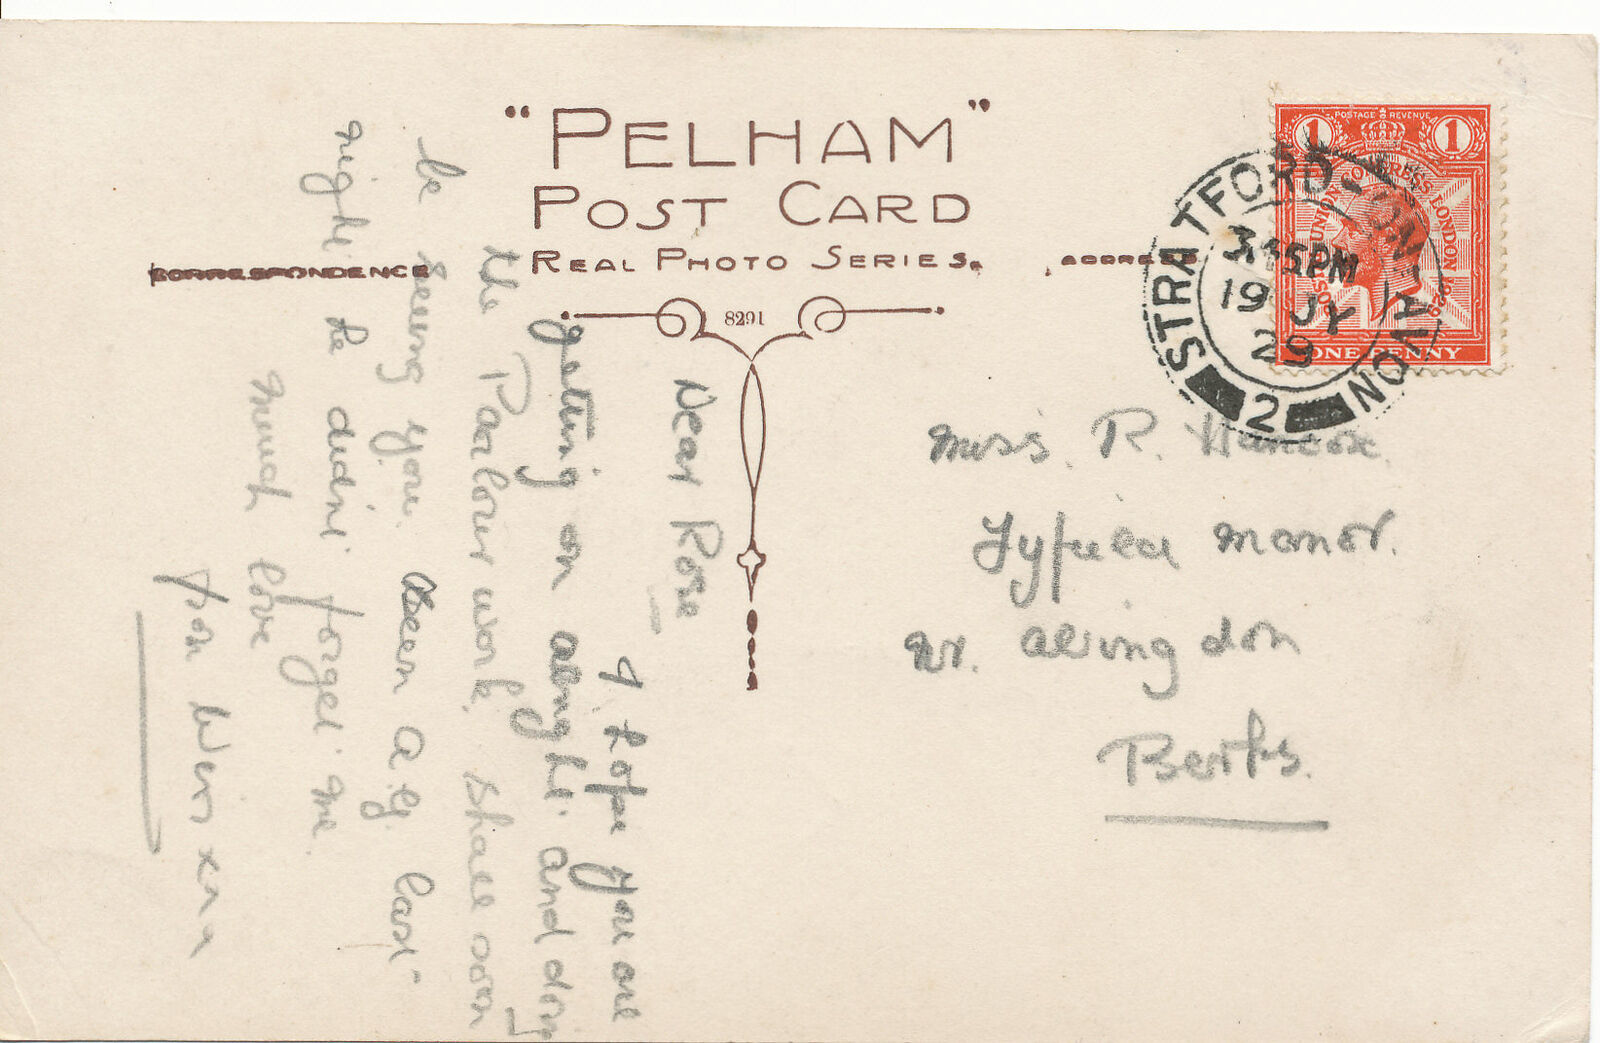 "PELHAM"
POST CARD
REAL PHOTO SERIES.
CORRESPONDENCE
ADDRESS
8291
POSTAGE REVENUE
1 1
POSTAL UNION CONGRESS LONDON 1929
ONE PENNY
STRATFORD-ON-AVON
3 15PM
19 JY
29
2
Miss. R.
Manor.
Nr. Abingdon
Berks.
Dear Rose
I hope you are
getting on alright. and doing
the Parlour work. Shall soon
be seeing you. Been a.g. last
night he didnt forget me.
much love
from